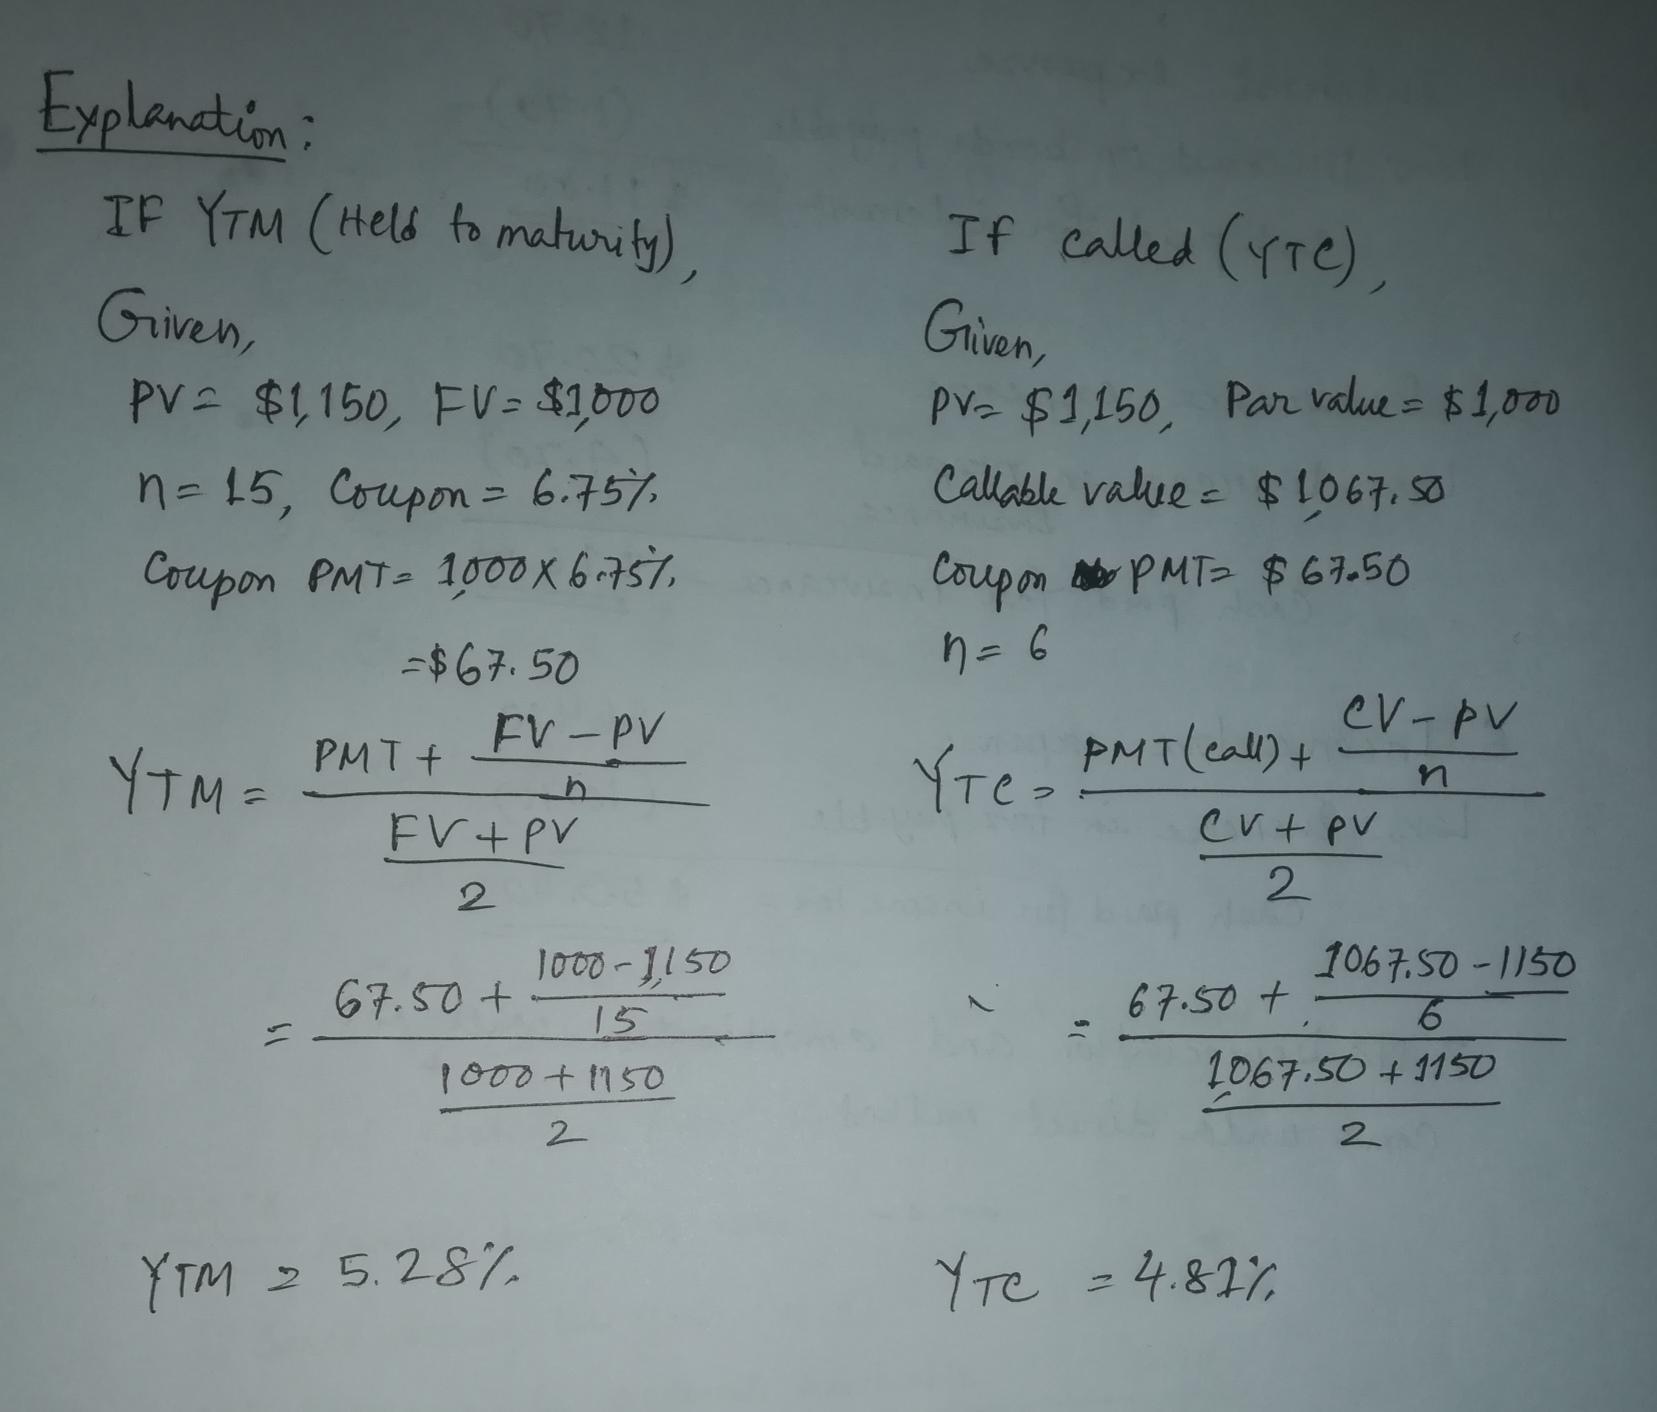 Explanation:
IF YTM (Held to maturity),
Given,
PV = $1,150, FV = $1,000
n = 15, Coupon = 6.75%
Coupon PMT = 1,000 x 6.75%
= $67.50
YTM = PMT + FV - PV
n
FV + PV
2
= 67.50 + 1000 - 1,150
15
1000 + 1150
2
YTM = 5.28%
If called (YTC),
Given,
PV = $1,150, Par value = $1,000
Callable value = $1,067.50
Coupon PMT = $67.50
n = 6
YTC = PMT (call) + CV - PV
n
CV + PV
2
= 67.50 + 1067.50 - 1150
6
1,067.50 + 1150
2
YTC = 4.81%